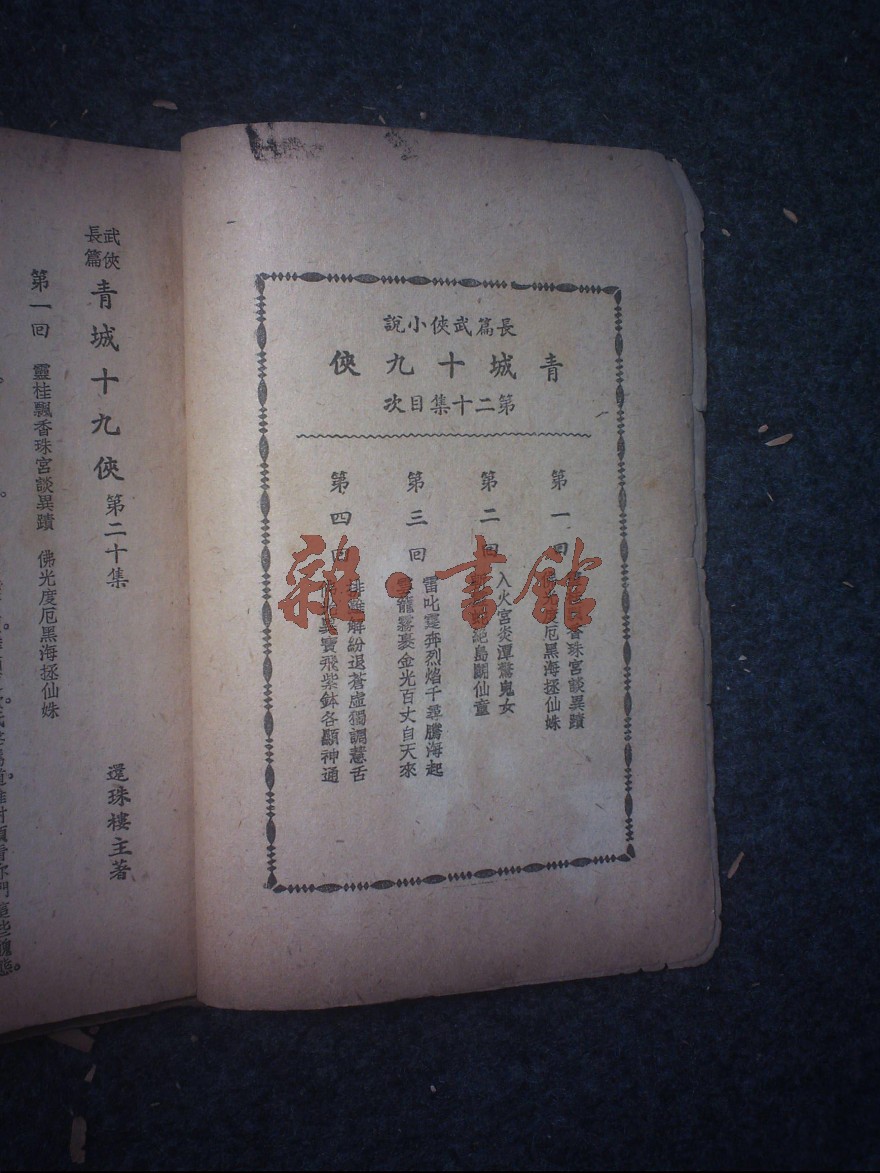 長篇武俠小說
青城十九俠
第二十集目次
第一回
香珠宮談異蹟
度厄黑海拯仙姝
第二回
入火宮炎潭驚鬼女
絕島鬭仙童
第三回
雷叱霆奔烈焰千尋騰海起
籠霧裹金光百丈自天來
第四回
排難解紛退蒼虛獨調慧舌
寶飛紫鉢各顯神通
雜·書館
武俠長篇
青城十九俠 第二十集
還珠樓主著
第一回 靈桂飄香珠宮談異蹟 佛光度厄黑海拯仙姝